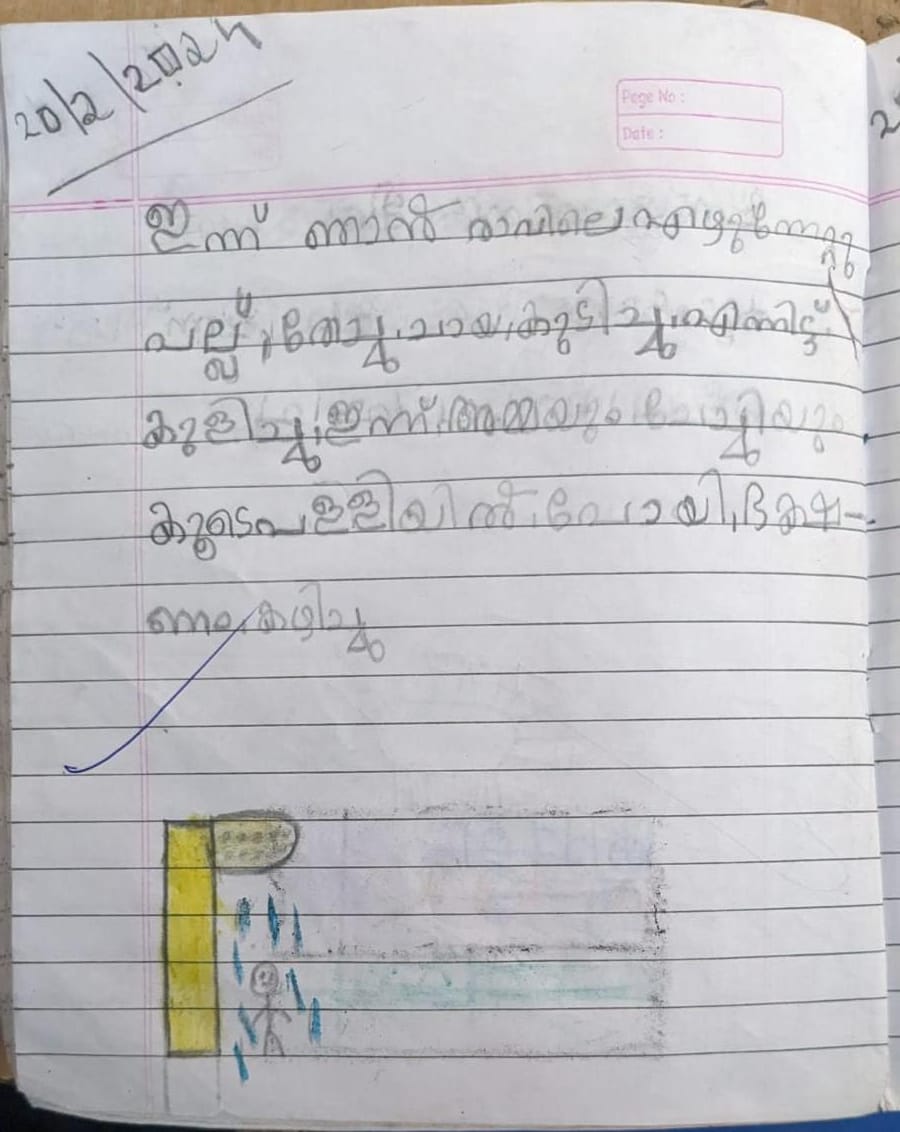 20/2/2024
Page No :
Date :
ഇന്ന് ഞാൻ രാവിലെ എഴുന്നേറ്റു
പല്ല് തേച്ചു, ചായ കുടിച്ചു, എന്നിട്ട്
കുളിച്ചു, ഇന്ന് അമ്മയും ചേച്ചിയും
കൂടെ പള്ളിയിൽ പോയി, ഭക്ഷ-
ണം കഴിച്ചു